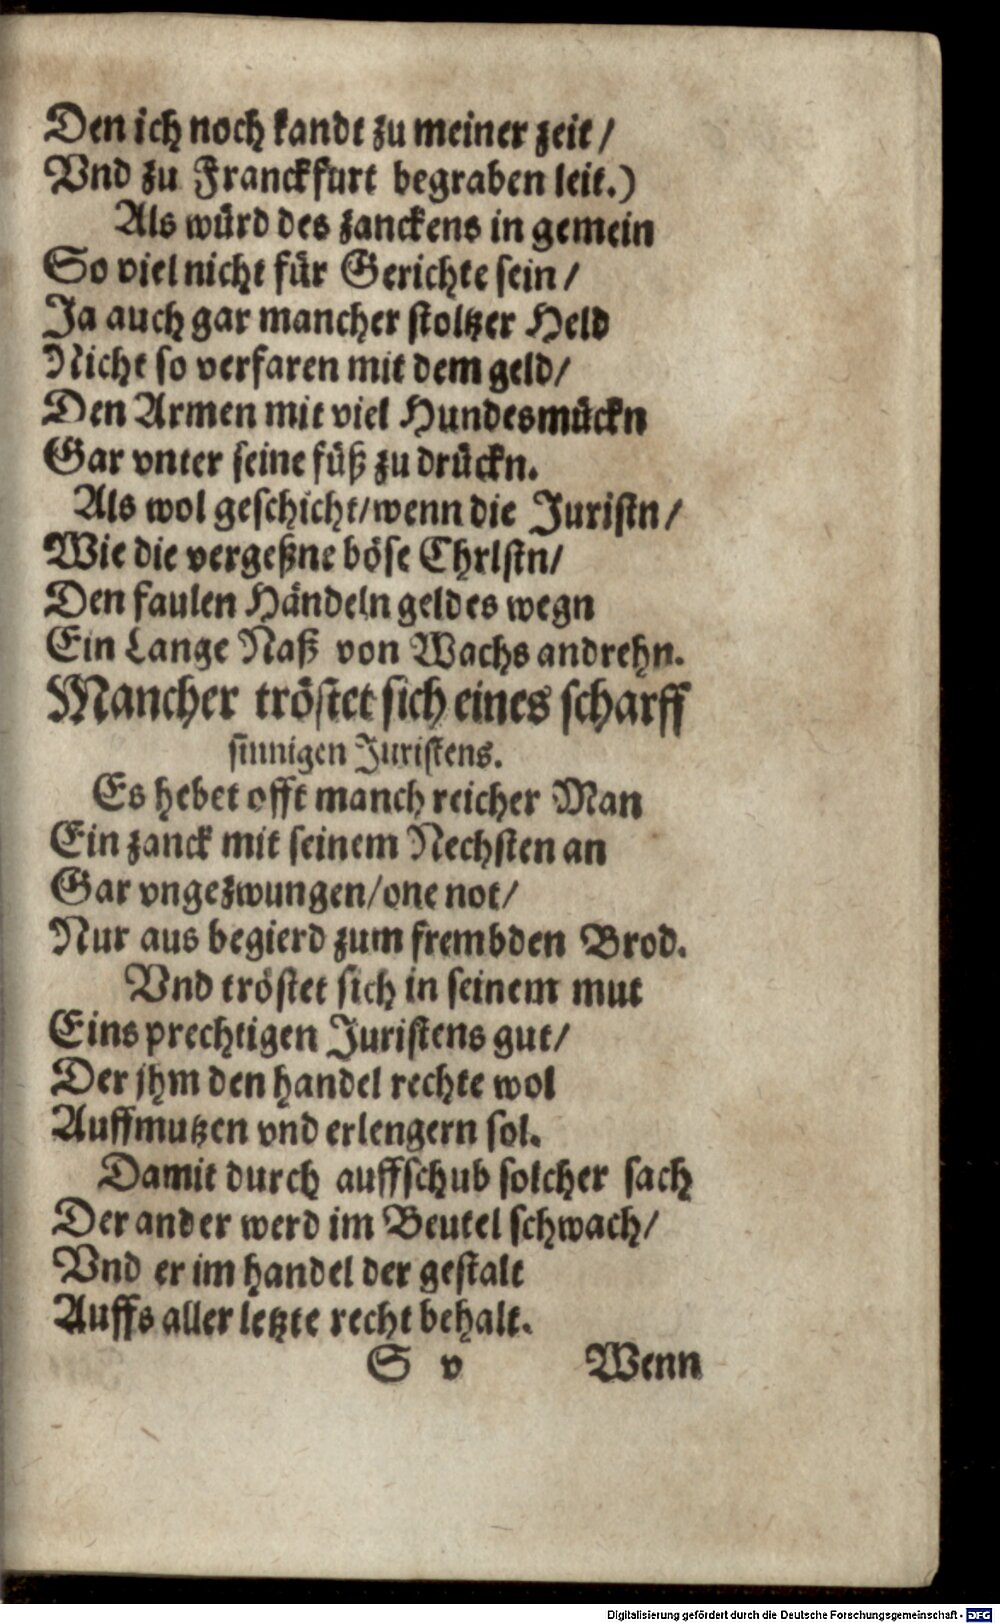 Den ich noch kandt zu meiner zeit /
Vnd zu Franckfurt begraben leit.)
Als würd des zanckens in gemein
So viel nicht für Gerichte sein /
Ja auch gar mancher stoltzer Held
Nicht so verfaren mit dem geld /
Den Armen mit viel Hundesmückn
Gar vnter seine füß zu drückn.
Als wol geschicht / wenn die Juristn /
Wie die vergeßne böse Chrlstn /
Den faulen Händeln geldes wegn
Ein Lange Naß von Wachs andrehn.
Mancher tröstet sich eines scharff
sinnigen Juristens.
Es hebet offt manch reicher Man
Ein zanck mit seinem Nechsten an
Gar vngezwungen / one not /
Nur aus begierd zum frembden Brod.
Vnd tröstet sich in seinem mut
Eins prechtigen Juristens gut /
Der jhm den handel rechte wol
Auffmutzen vnd erlengern sol.
Damit durch auffschub solcher sach
Der ander werd im Beutel schwach /
Vnd er im handel der gestalt
Auffs aller letzte recht behalt.
S v Wenn
Digitalisierung gefördert durch die Deutsche Forschungsgemeinschaft - DFG